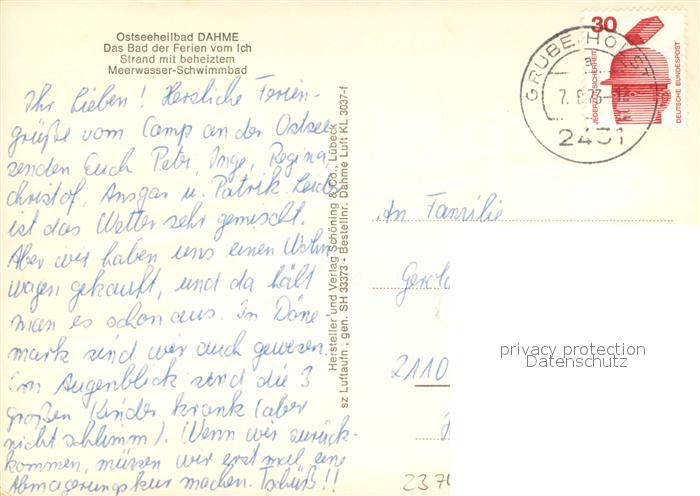 Ostseeheilbad DAHME
Das Bad der Ferien vom Ich
Strand mit beheiztem
Meerwasser-Schwimmbad
Ihr Lieben! Herzliche Ferien-
grüße vom Camp an der Ostsee
senden Euch Peter, Inge, Regina,
Christof, Ansgar u. Patrik. Leider
ist das Wetter sehr gemischt.
Aber wir haben uns einen Wohn
wagen gekauft, und da hält
man es schon aus. In Däne-
mark sind wir auch gewesen.
Im Augenblick sind die 3
großen Kinder krank (aber
nicht schlimm). Wenn wir zurück-
kommen, müssen wir erst mal eine
Abmagerungskur machen. Tschüß!!
Hersteller und Verlag Schöning & Co., Lübeck
sz Luftaufn., gen. SH 33373 - Bestellnr. Dahme Luft KL 3037-f
30
JEDERZEIT SICHERHEIT
DEUTSCHE BUNDESPOST
GRUBE HOLST
a
7. 8.73-12
2431
An Familie
2110
privacy protection
Datenschutz